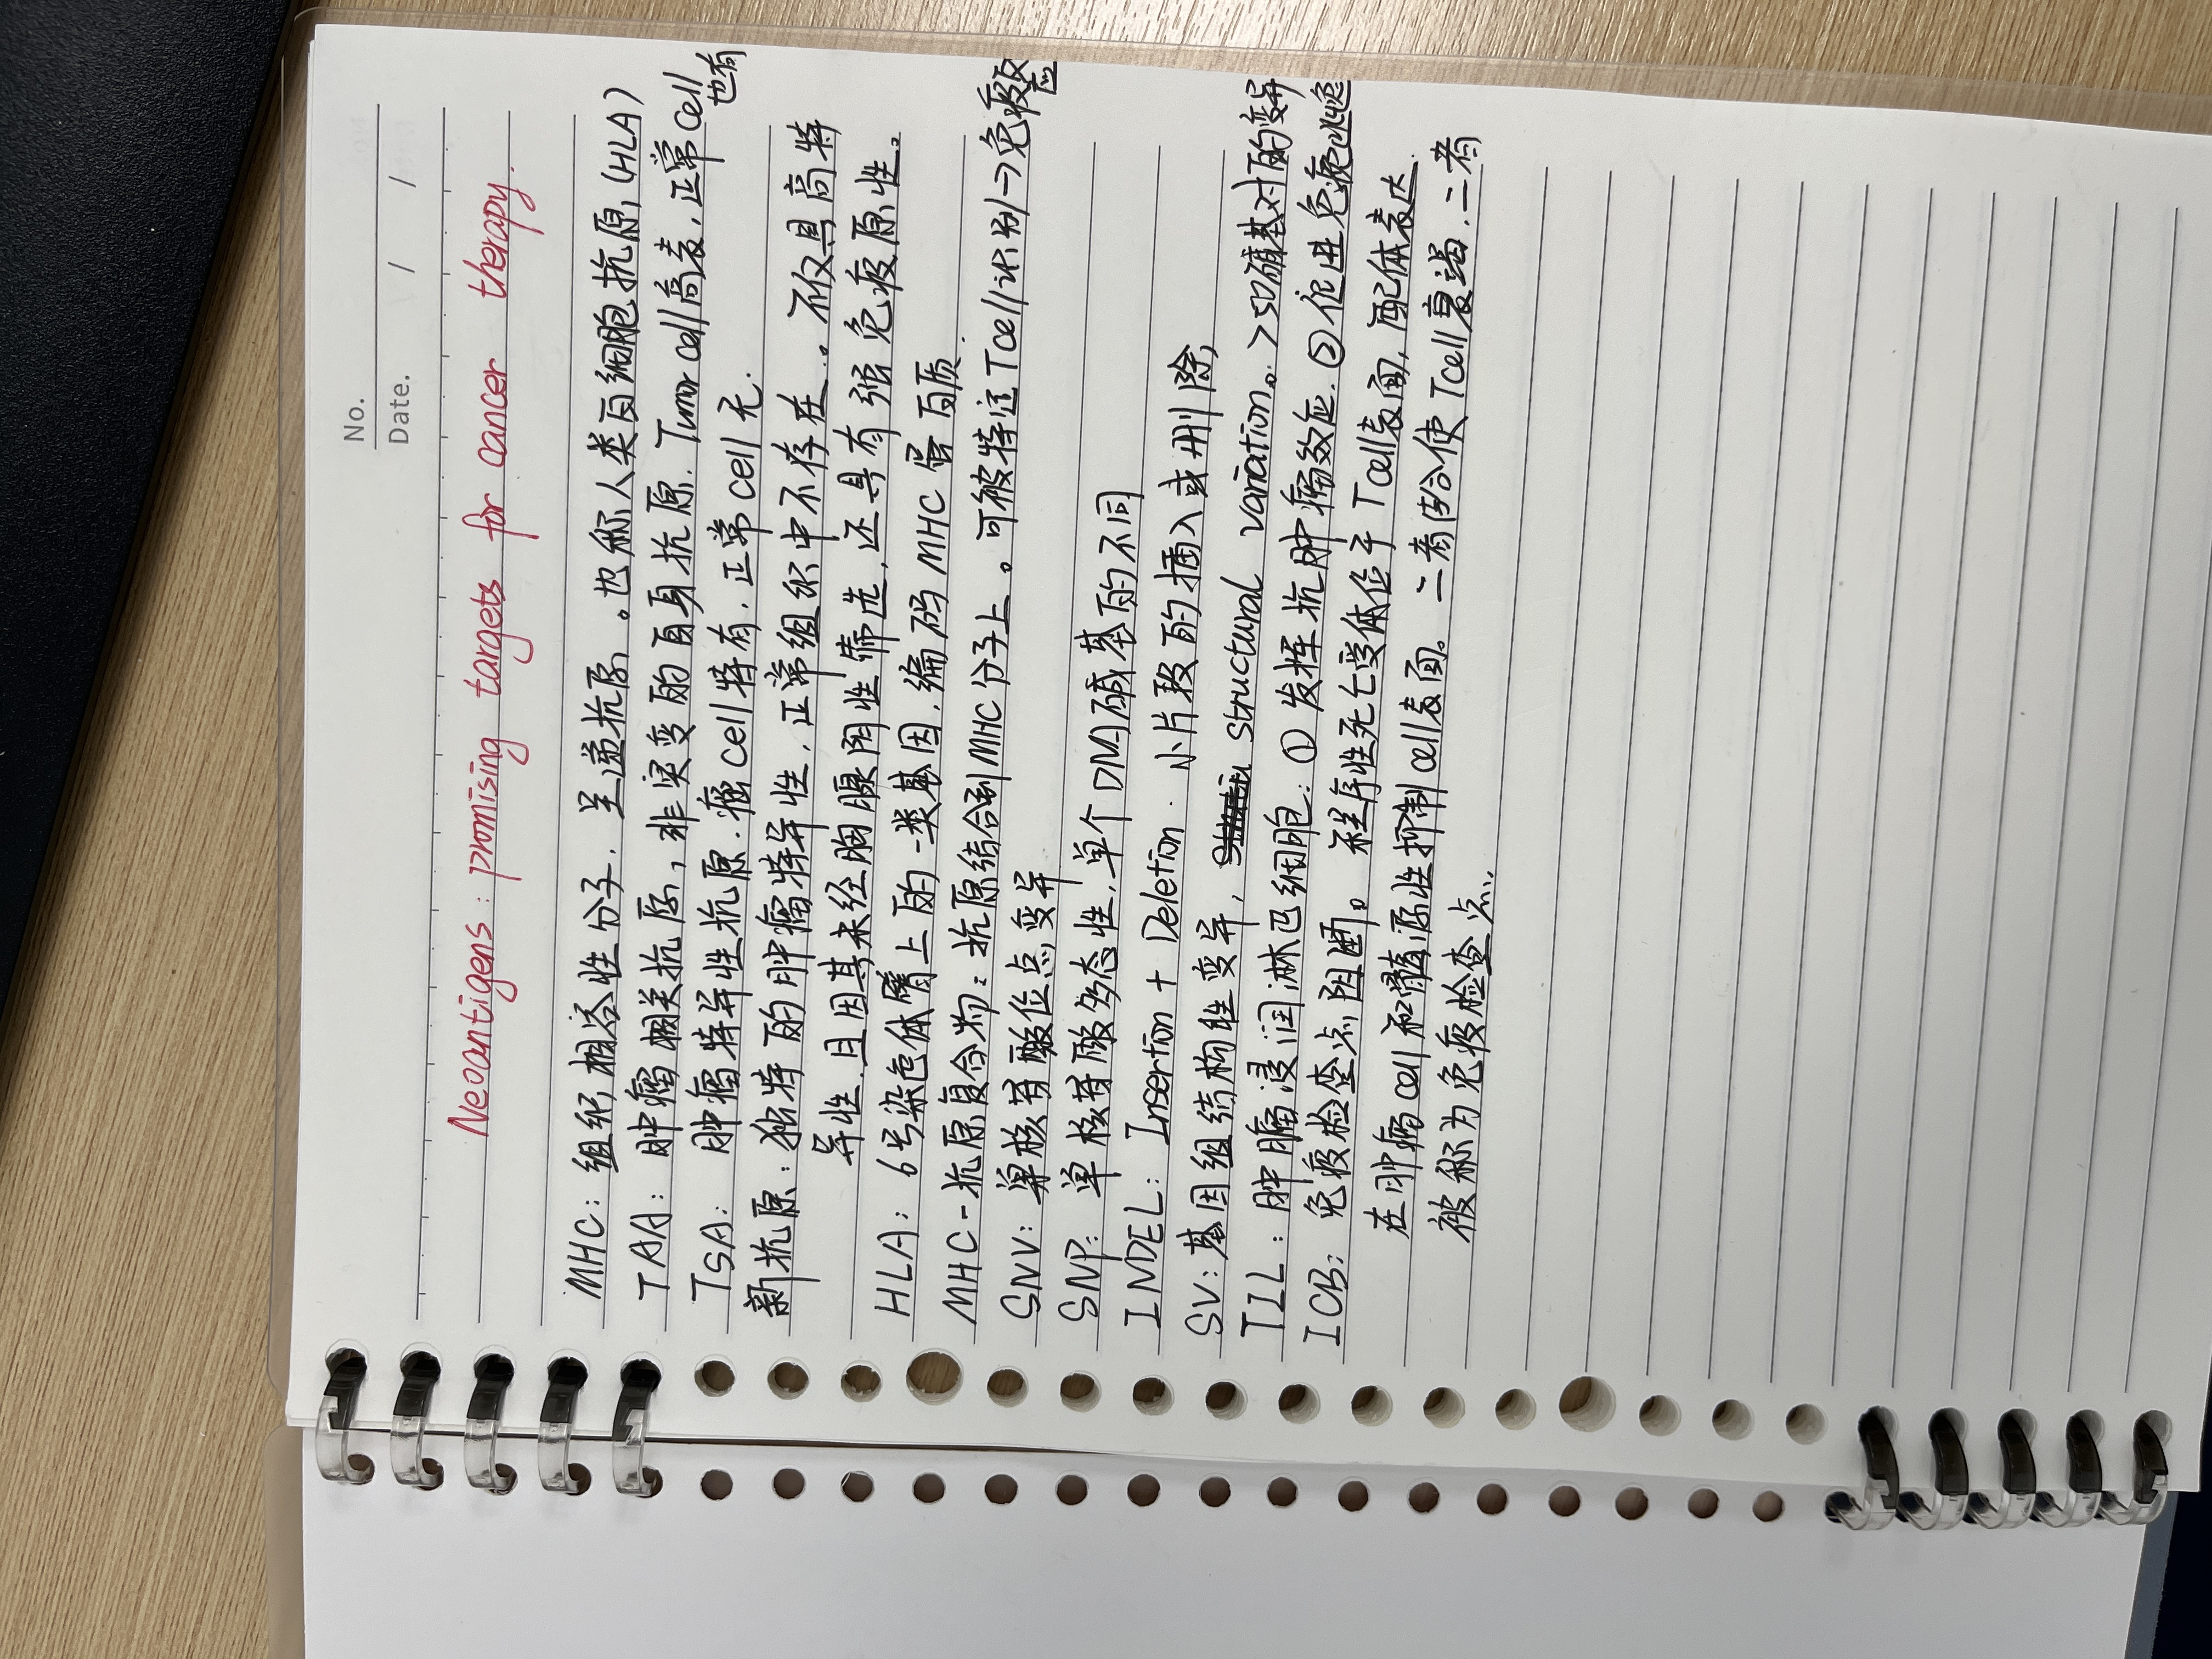 No.
Date. / /
Neoantigens: promising targets for cancer therapy.
MHC: 组织相容性分子. 呈递抗原。也称人类白细胞抗原(HLA)
TAA: 肿瘤相关抗原, 非突变的自身抗原. Tumor cell高表, 正常cell也有
TSA: 肿瘤特异性抗原. 癌cell特有, 正常cell无.
新抗原: 独特的肿瘤特异性, 正常组织中不存在。不仅具高特
异性, 且因其未经胸腺阴性筛选, 还具有强免疫原性。
HLA: 6号染色体臂上的一类基因, 编码MHC蛋白质.
MHC-抗原复合物: 抗原结合到MHC分子上。可被特定Tcell识别→免疫反应
SNV: 单核苷酸位点变异
SNP: 单核苷酸多态性, 单个DNA碱基的不同
INDEL: Insertion + Deletion. 小片段的插入或删除
SV: 基因组结构性变异, structural variation。>50碱基对的变异
TIL: 肿瘤浸润淋巴细胞: ① 发挥抗肿瘤效应. ② 促进免疫逃逸
ICB: 免疫检查点阻断。程序性死亡受体位于Tcell表面, 配体表达
在肿瘤cell和髓源性抑制cell表面。二者结合使Tcell衰竭. 二者
被称为免疫检查点.